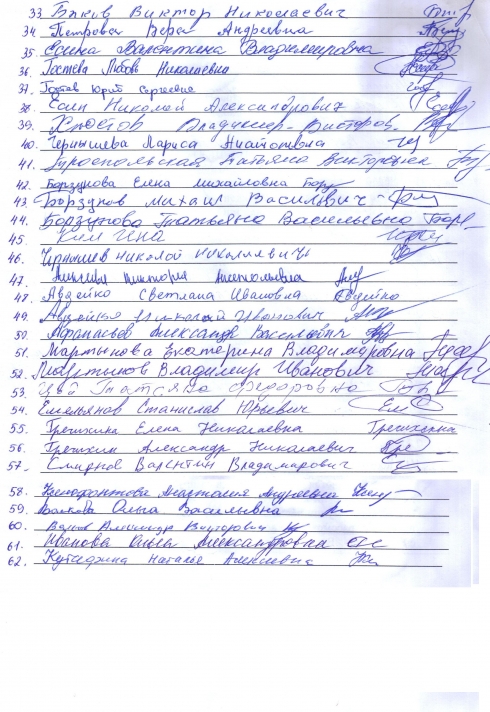 33. Быков Виктор Николаевич
34. Петрова Вера Андреевна
35. Валентина Владимировна
36. Гостева Любовь Николаевна
37. Гостев Юрий Сергеевич
38. Есин Николай Александрович
39. Хростов Владимир Викторов.
40. Чернышева Лариса Анатольевна
41. Татьяна Викторовна
42. Борзунова Елена Михайловна
43. Борзунов Михаил Васильевич
44. Борзунова Татьяна Васильевна
45. Ким Инна
46. Чернышев Николай Николаевич
47. Виктория Анатольевна
48. Авдейко Светлана Ивановна Авдейко
49. Авдейко Николай Иванович
50. Афанасьев Александр Васильевич
51. Мартынова Екатерина Владимировна
52. Мартынов Владимир Иванович
53. Цой Татьяна Федоровна
54. Емельянов Станислав Юрьевич
55. Гречихина Елена Николаевна
56. Гречихин Александр Николаевич
57. Смирнов Валентин Владимирович
58. Анастасия Андреевна
59. Волкова Ольга Васильевна
60. Волков Александр Викторович
61. Иванова Ольга Александровна
62. Наталья Алексеевна